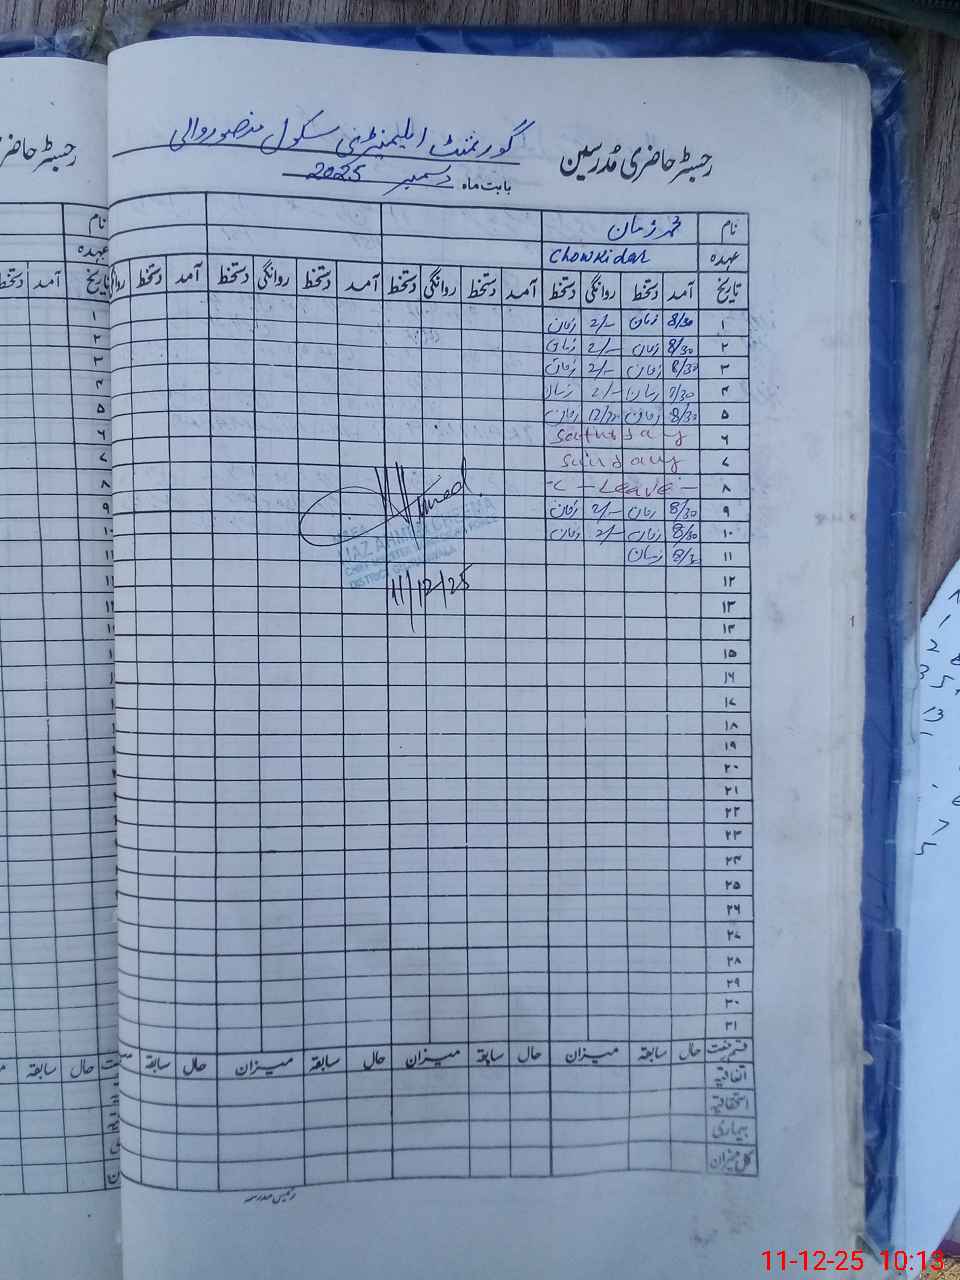 گورنمنٹ ایلیمنٹری سکول منصوروالی
رجسٹر حاضری مدرسین
بابت ماہ دسمبر 2025
نام محمد زمان
عہدہ Chowkidar
تاریخ آمد دستخط روانگی دستخط آمد دستخط روانگی دستخط آمد دستخط روانگی دستخط آمد دستخط
۱ 8/30 زمان 2/- زمان
۲ 8/30 زمان 2/- زمان
۳ 8/30 زمان 2/- زمان
۴ 8/30 زمان 2/- زمان
۵ 8/30 زمان 12/30 زمان
۶ Saturday
۷ Sunday
۸ -C-Leave-
۹ 8/30 زمان 2/- زمان
۱۰ 8/30 زمان 2/- زمان
۱۱ 8/3 زمان
Ahmed
11/12/25
۱۲
۱۳
۱۴
۱۵
۱۶
۱۷
۱۸
۱۹
۲۰
۲۱
۲۲
۲۳
۲۴
۲۵
۲۶
۲۷
۲۸
۲۹
۳۰
۳۱
قسم رخصت حال سابقہ میزان حال سابقہ میزان حال سابقہ میزان حال سابقہ
اتفاقیہ
استحقاقیہ
بیماری
کل میزان
رئیس مدرسہ
11-12-25 10:13